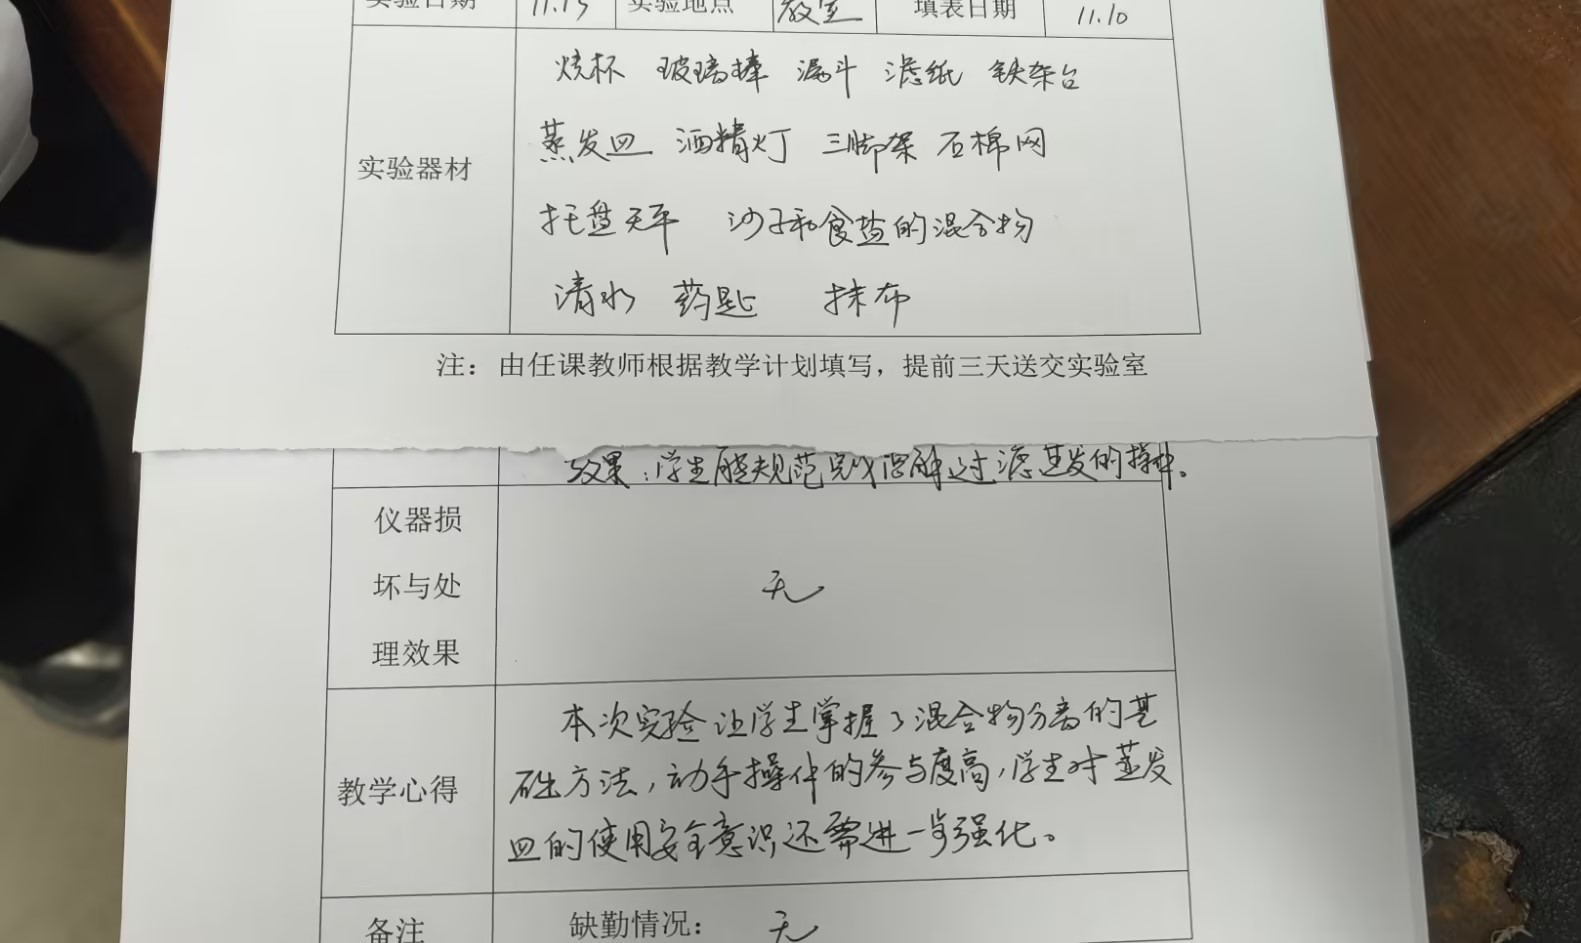 实验日期 11.13 实验地点 教室 填表日期 11.10
烧杯 玻璃棒 漏斗 滤纸 铁架台
蒸发皿 酒精灯 三脚架 石棉网
实验器材
托盘天平 沙子和食盐的混合物
清水 药匙 抹布
注：由任课教师根据教学计划填写，提前三天送交实验室
效果：学生能规范完成溶解过滤蒸发的操作。
仪器损
坏与处
理效果
无
本次实验让学生掌握了混合物分离的基
础方法，动手操作的参与度高，学生对蒸发
皿的使用安全意识还需进一步强化。
教学心得
备注 缺勤情况： 无